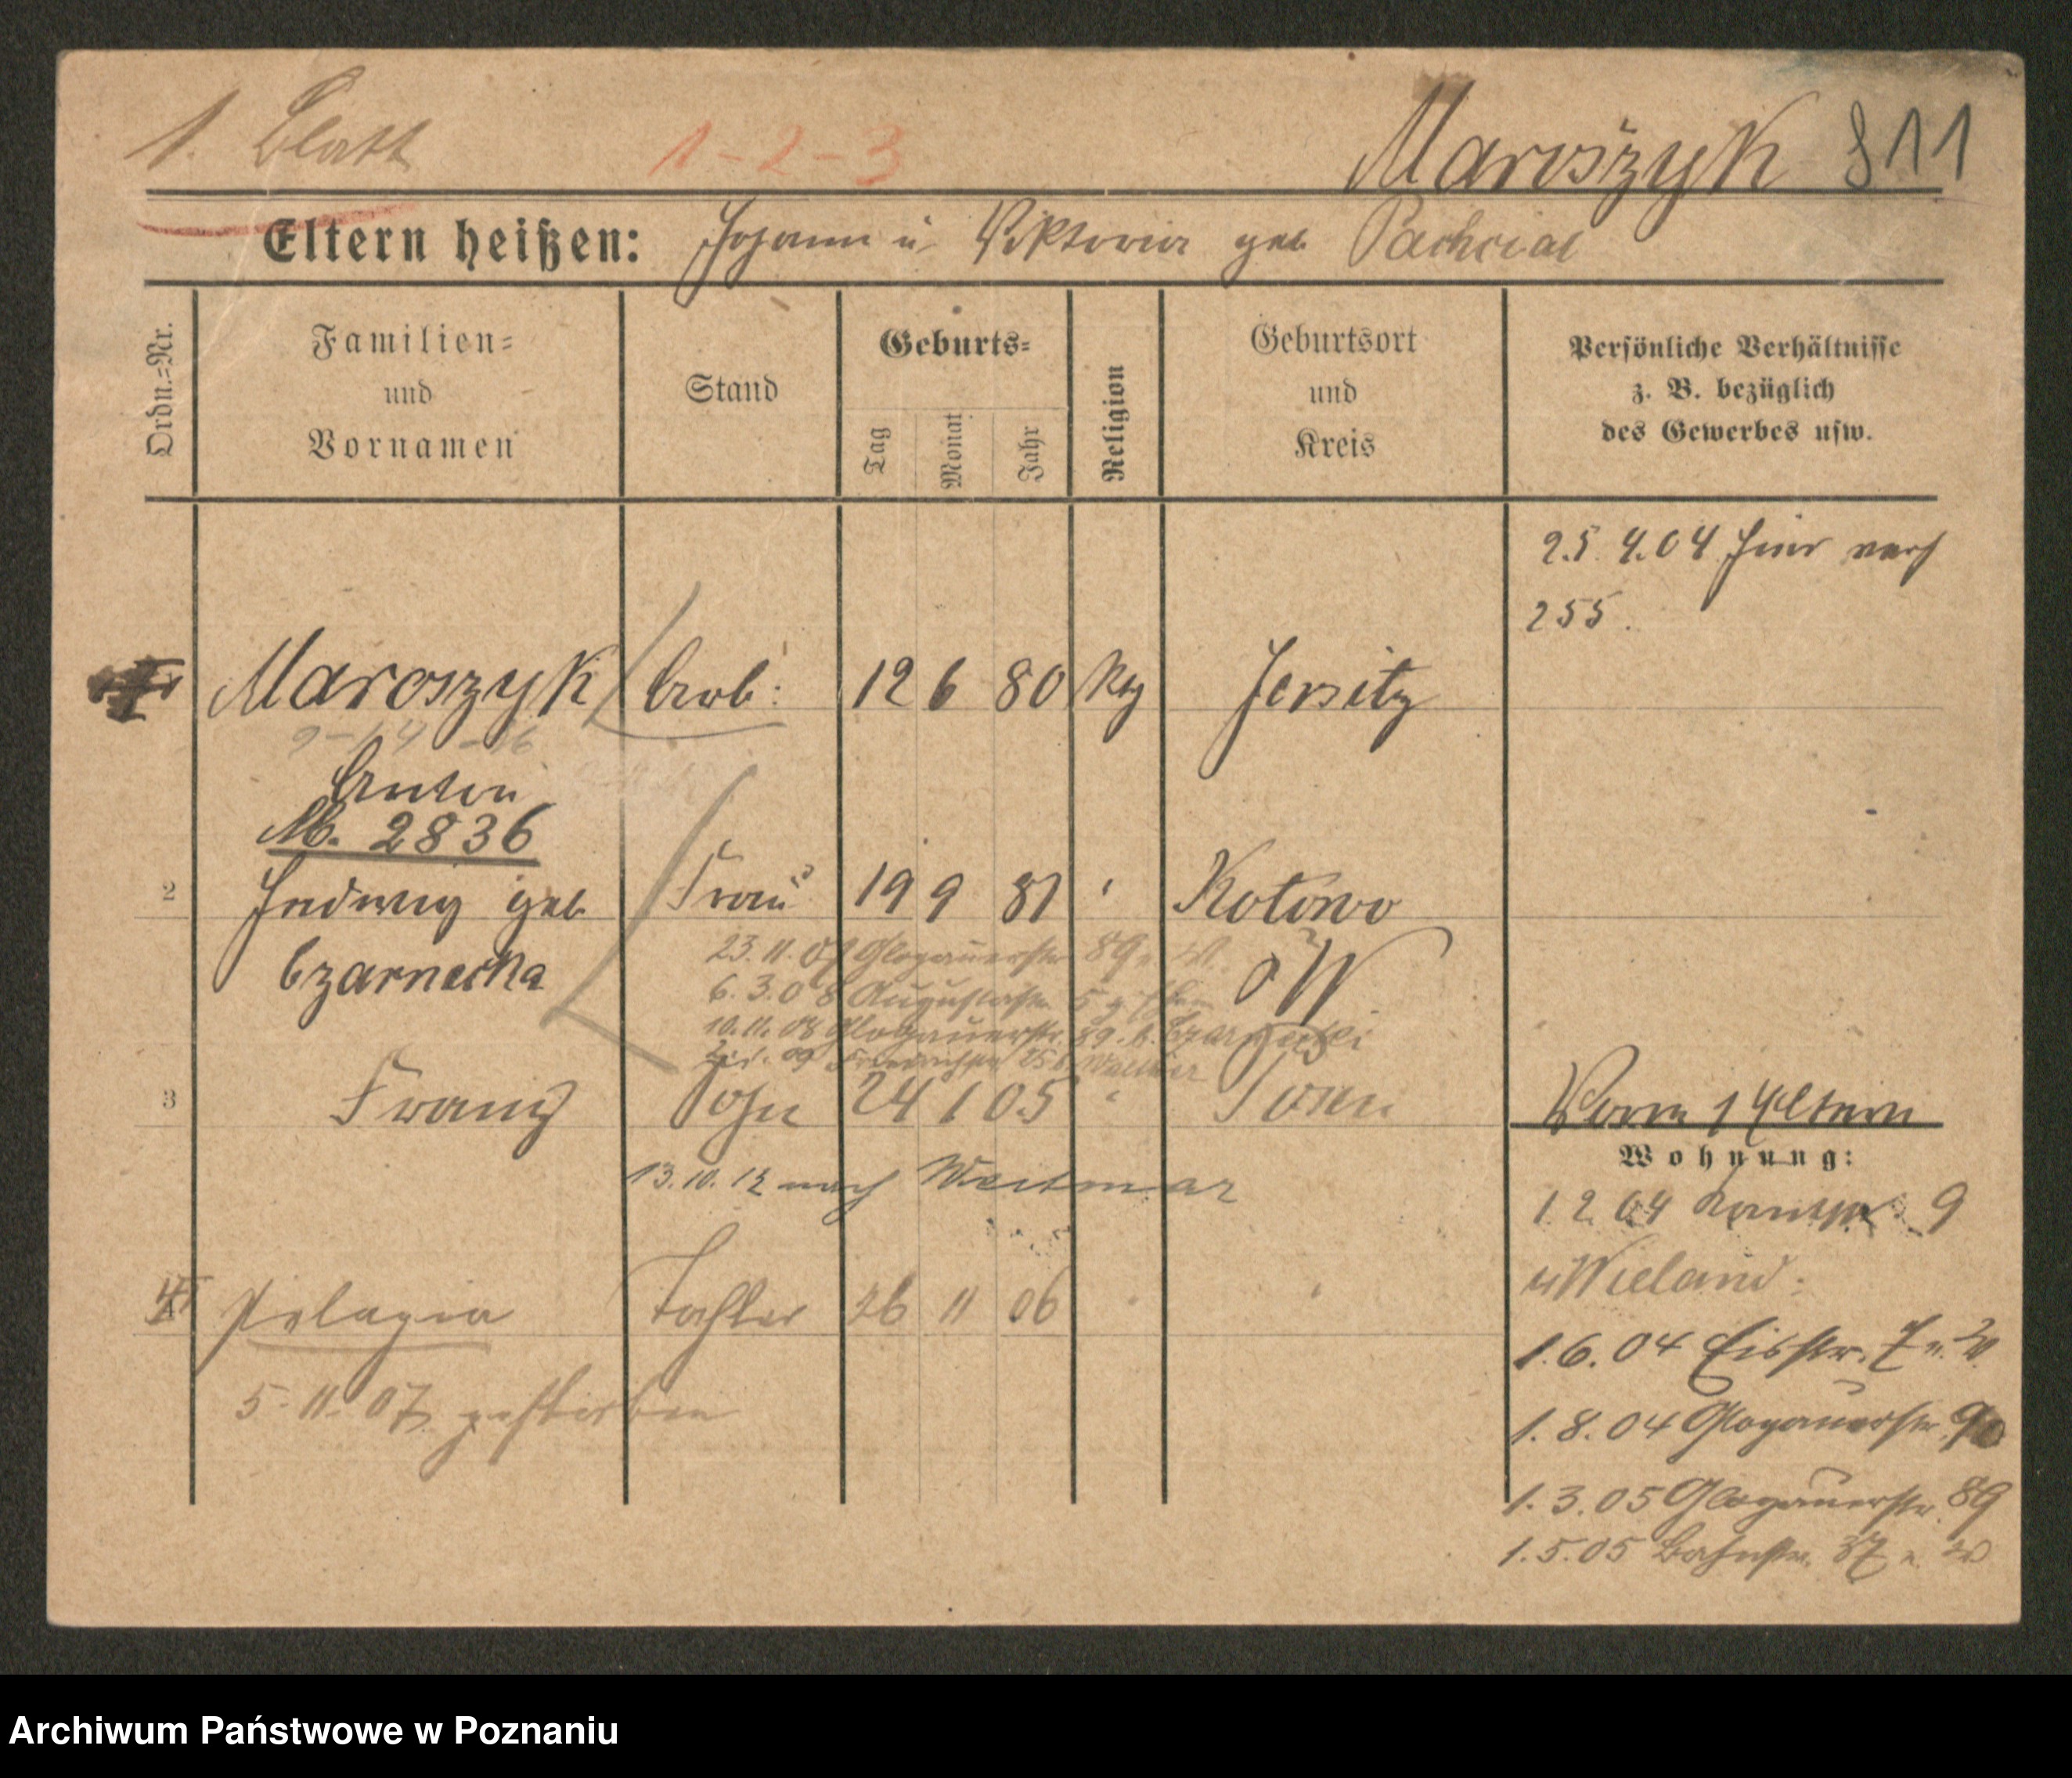 1. Blatt 1-2-3 Maroszyk 811
Eltern heißen: Johann u Viktoria geb
Ordn.=Nr.
Familien=
und
Vornamen
Stand
Geburts=
Tag
Monat
Jahr
Religion
Geburtsort
und
Kreis
Persönliche Verhältnisse
z. B. bezüglich
des Gewerbes usw.
25.4.04
255.
Maroszyk Arb: 12 6 80 Jersitz
Anton
M. 2836
2 Hedwig geb Frau 19 9 81 Kotowo
Czarnecka
23.11.07 Glogauerstr 89
6.3.08 Augustastr 5
10.11.08 Glogauerstr. 89 b. Czarnecki
09
3 Franz Sohn 24 1 05 " Posen
13.10.12 nach Weitmar
4 Pelagia Tochter 26 11 06 " "
5-11-07 gestorben
Vorm Eltern
Wohnung:
1.2.04 9
Wieland:
1.6.04 Eisstr. 7
1.8.04 Glogauerstr. 90
1.3.05 Glogauerstr. 89
1.5.05 Bahnstr. 37
Archiwum Państwowe w Poznaniu